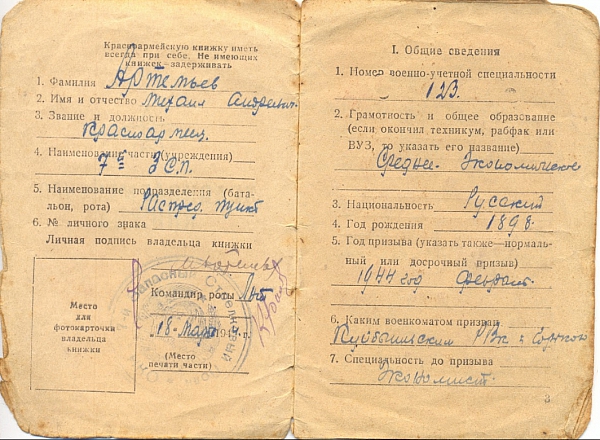 Красноармейскую книжку иметь
всегда при себе. Не имеющих
книжек—задерживать
1. Фамилия Артемьев
2. Имя и отчество Михаил Андреевич
3. Звание и должность
Красноармеец
4. Наименование части (учреждения)
7й З.С.П.
5. Наименование подразделения (бата-
льон, рота) Распред. пункт
6. № личного знака
Личная подпись владельца книжки
Место
для
фотокарточки
владельца
книжки
Командир роты
18 Марта 1944 г.
(Место
печати части)
I. Общие сведения
1. Номер военно-учетной специальности
123.
2. Грамотность и общее образование
(если окончил техникум, рабфак или
ВУЗ, то указать его название)
Средне-Экономическое
3. Национальность Русский
4. Год рождения 1898.
5. Год призыва (указать также—нормаль-
ный или досрочный призыв)
1944 год
6. Каким военкоматом призван
Куйбышевским РВК г. Горького
7. Специальность до призыва
Экономист.
3